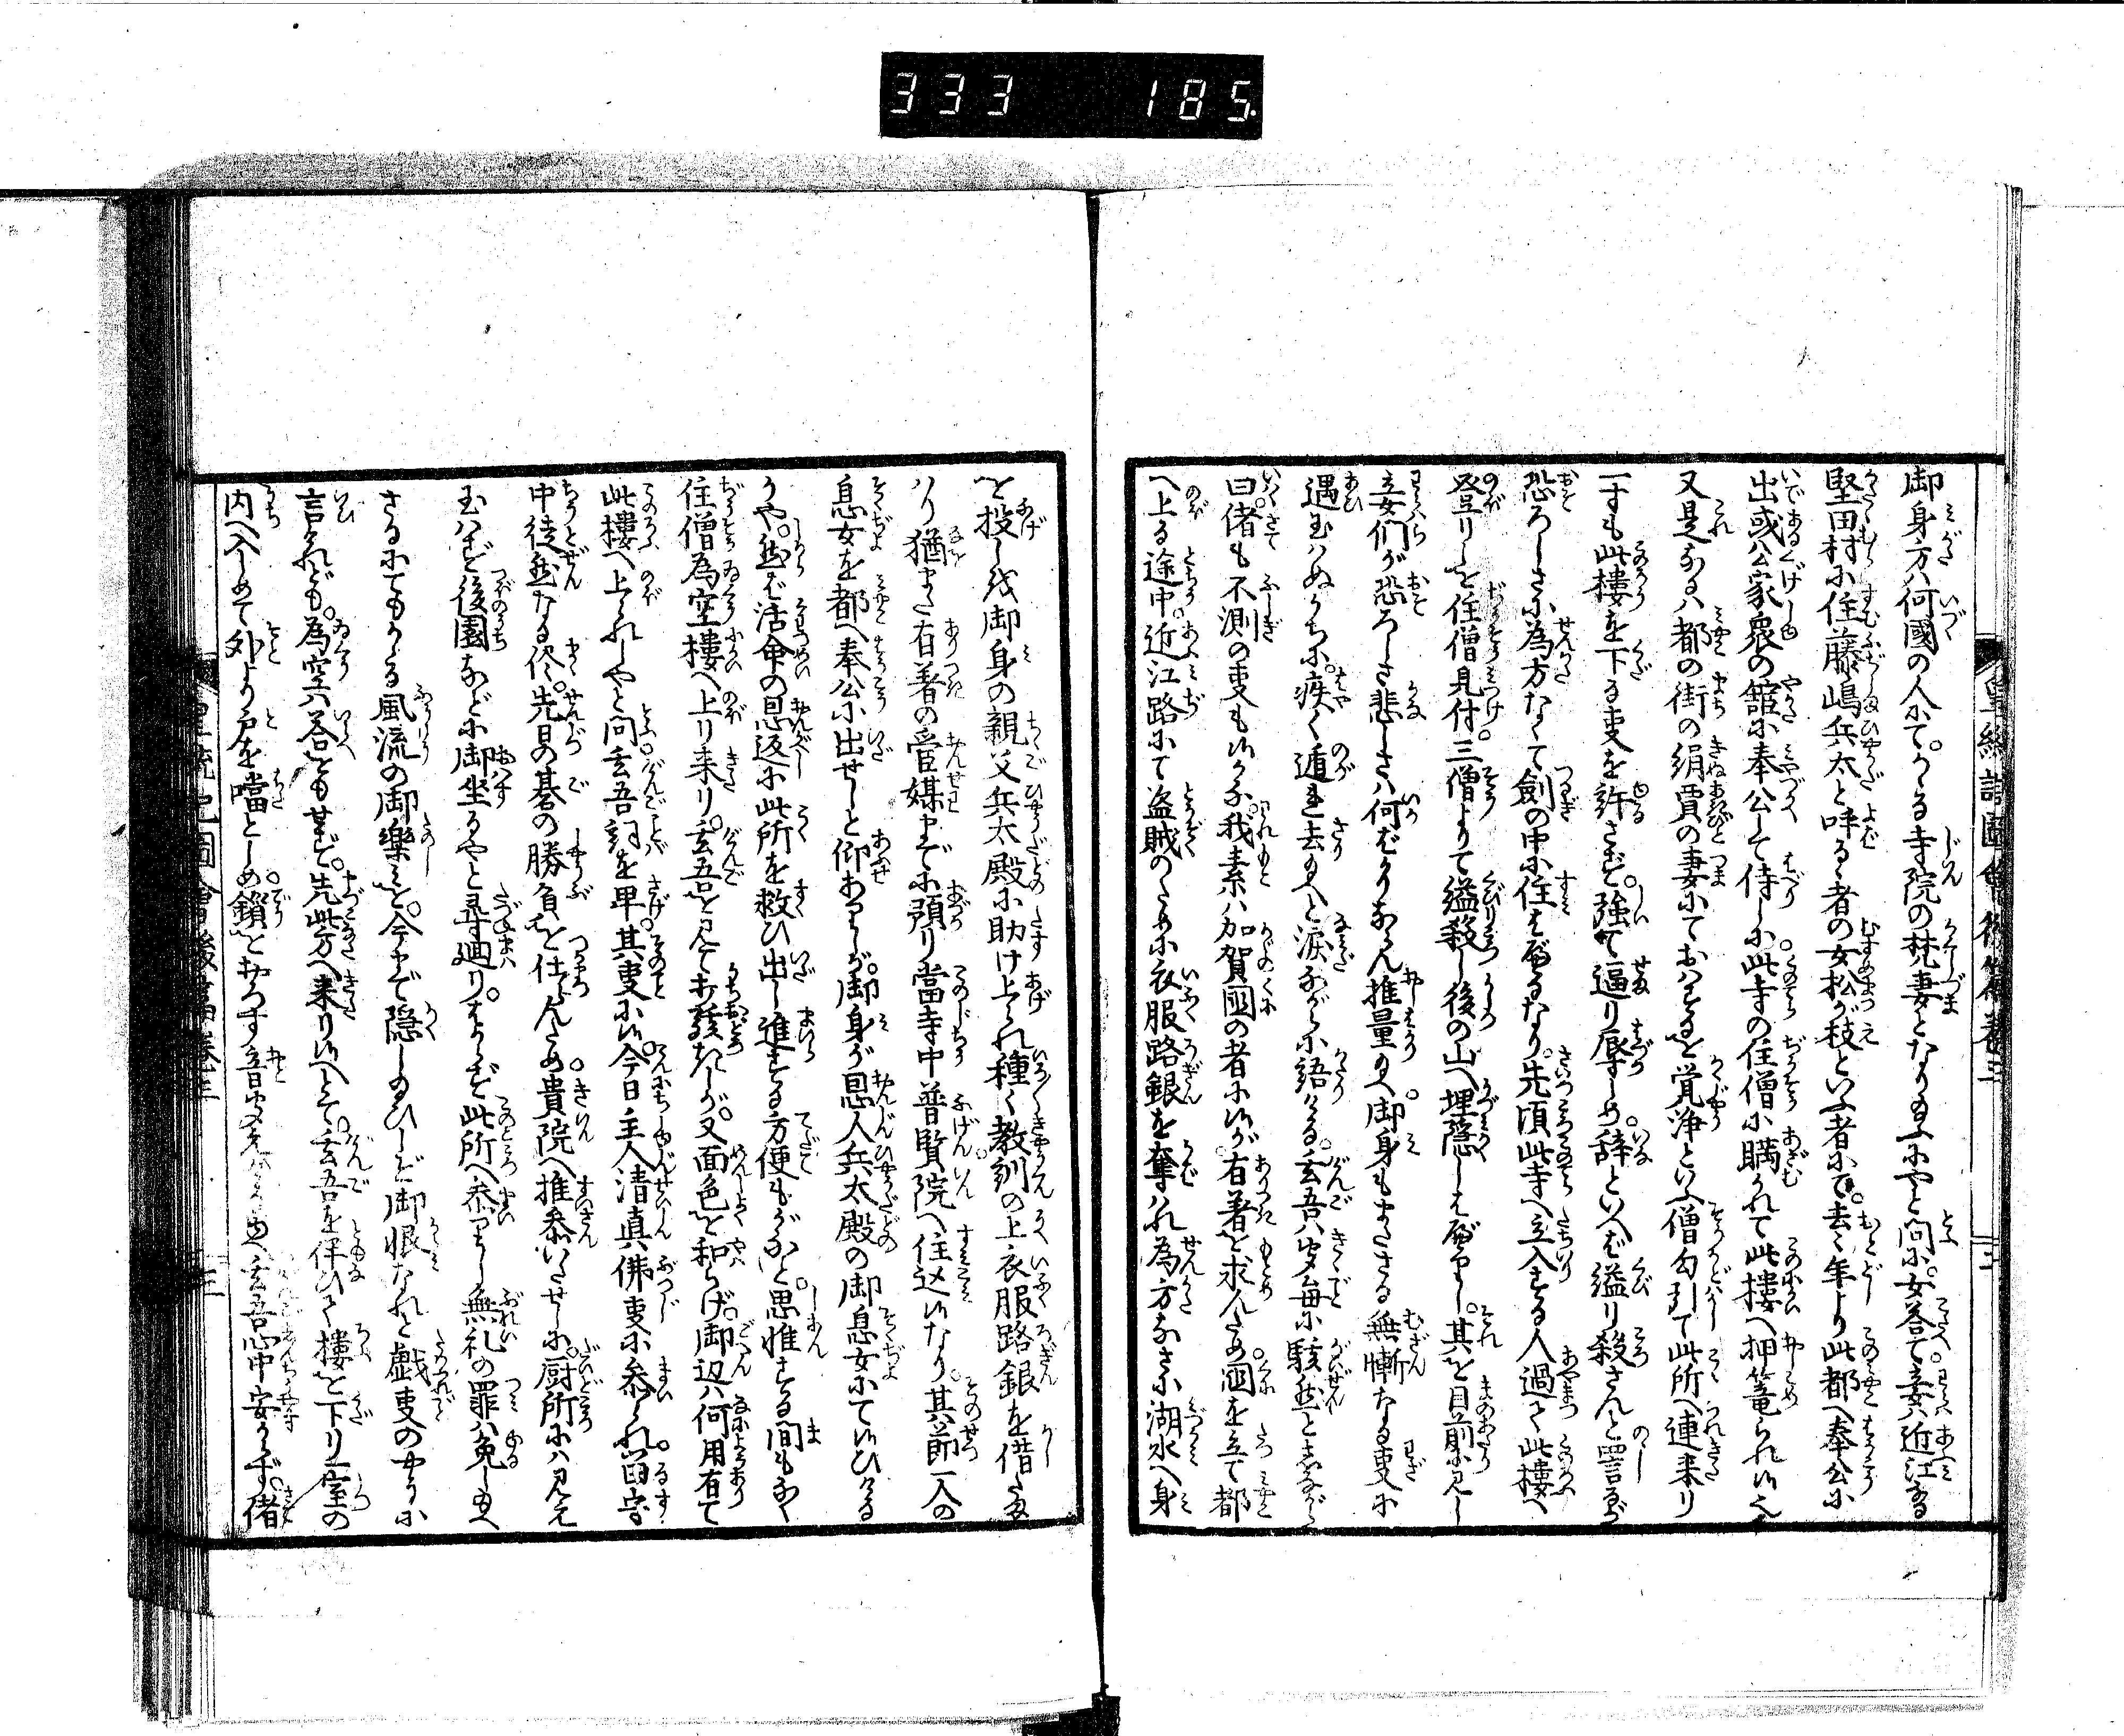 333 185
御身方ハ何國の人にて。かゝる寺院の梵妻となり玉ふにやと問ふ。女答て妾ハ近江なる
堅田村に住藤嶋兵太と呼る者の女松が枝といふ者にて。去々年より此都へ奉公に
出或公家衆の舘に奉公して侍しに此寺の住僧に瞞かれて此樓へ押篭られ候
又是なるハ都の街の絹賈の妻にておハせしを覚浄といふ僧勾引て此所へ連来り
一寸も此樓を下る叓を許さず。強て逼り辱しめ。辞といへバ縊り殺さんと詈るが
恐ろしさに為方なくて劍の中に住をるなり。先頃此寺へ立入する人過て此樓へ
登りしを住僧見付。三僧よりて縊殺し後の山へ埋隠しをり。其を目前に見し
妾們が恐ろしさ悲しさハ何ばかりならん推量玉へ。御身もまたさる無慚なる叓に
遇玉ハぬうちに。疾く遁を去玉へと涙ながらに語りける。玄吾ハ叓毎に駭然としながら
曰。偖も不測の叓も候かな。我素ハ加賀國の者に候が。有著を求んため。國を立て都
へ上る途中。近江路にて盗賊のために衣服路銀を奪ハれ為方なさに湖水へ身
を投しを御身の親父兵太殿に助け上られ種々教訓の上衣服路銀を借玉
ハり猶また有著の管媒まで预り當寺中普賢院へ住込候なり。其節一人の
息女を都へ奉公に出せしと仰ありしが。御身が恩人兵太殿の御息女にて候ひける
かや。然バ活命の恩返に此所を救ひ出し進する方便もがなと。思惟する間もなく
住僧為空樓へ上り来り。玄吾を見て打驚きしが。又面色を和らげ。御辺ハ何用有て
此樓へ上られしやと問。玄吾詞を卑。其叓に候。今日主人清真ハ佛叓に参られ。留守
中徒然なる侭。先日の碁の勝負を仕らんため。貴院へ推参いたせしに。厨所にハ見え
玉ハず後園などに御坐るやと尋廻り。はからず此所へ参りし無礼の罪ハ免し玉へ
さるにてもかゝる風流の御樂みを。今まで隠しのひしハ御恨なれと戯叓のやうに
言けれども。為空ハ答ともせず。先此方へ来り候へとて。玄吾を伴ひて樓を下り一室の
内へ入しめて外より戸を噹としめ。鎖をおろす音 玄吾心中安からず。偖